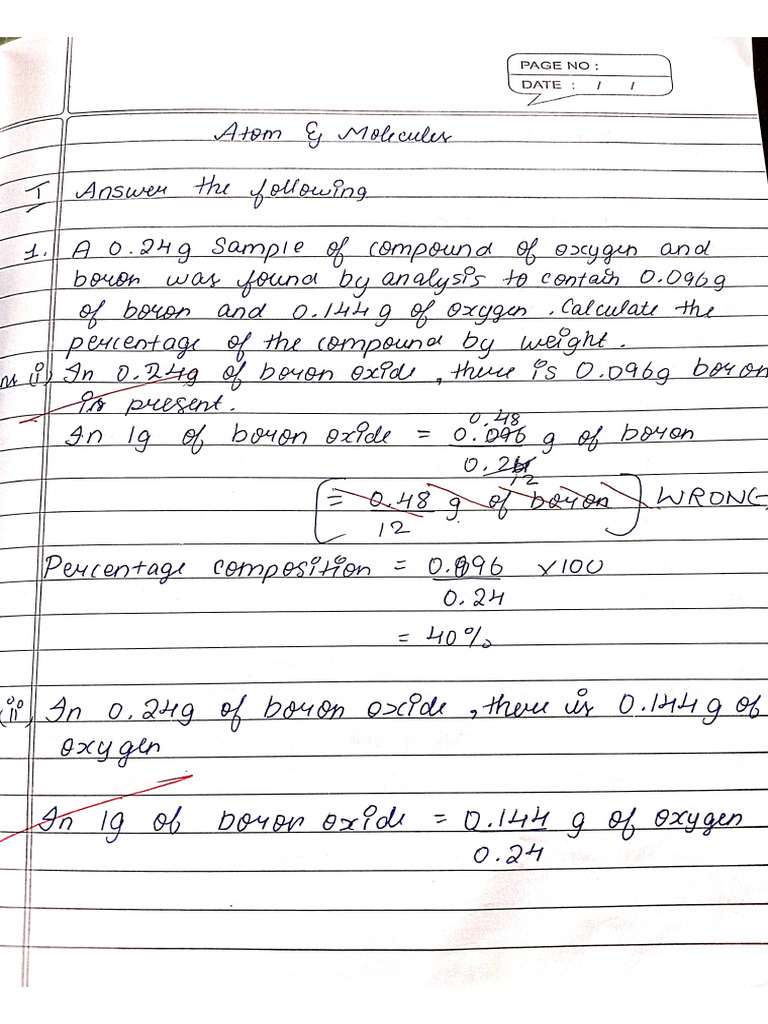 PAGE NO :
DATE : / /
Atom & Molecules
I Answer the following
1. A 0.24g sample of compound of oxygen and
boron was found by analysis to contain 0.096g
of boron and 0.144g of oxygen. Calculate the
percentage of the compound by weight.
(i) In 0.24g of boron oxide, there is 0.096g boron
is present.
0.48
In 1g of boron oxide = 0.096 g of boron
0.24
12
= 0.48 g of boron WRONG
12
Percentage composition = 0.096 x100
0.24
= 40%
(ii) In 0.24g of boron oxide, there is 0.144g of
oxygen
In 1g of boron oxide = 0.144 g of oxygen
0.24